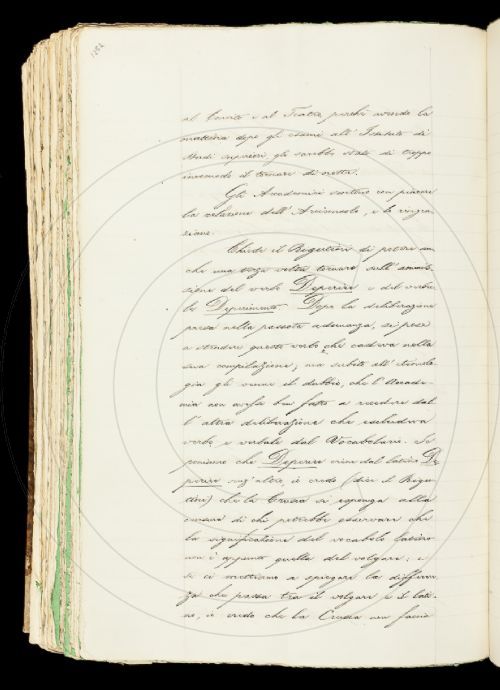 al Convito e al Teatro, perchè avendo la
mattina dopo gli esami all' Istituto di
studi superiori, gli sarebbe stato di troppo
incomodo il tornare di notte.
Gli Accademici sentono con piacere
la relazione dell' Arciconsolo, e lo ringra-
ziano.
Chiede il Rigutini di potere an
che una terza volta tornare sull' ammis-
sione del verbo Deperire e del verba-
le Deperimento. Dopo la deliberazione
presa nella passata adunanza, si pose
a stendere questo verbo che cadeva nella
sua compilazione; ma subito all' etimolo-
gia gli venne il dubbio, che l' Accade-
mia non avesse ben fatto a recedere dal-
l' altra deliberazione che escludeva
verbo e verbale dal Vocabolario. Se
poniamo che Deperire viene dal latino De-
perire senz' altro, io credo (dice il Rigu-
tini) che la Crusca si esponga alla
censura di chi potrebbe osservare che
la significazione del vocabolo latino
non è appunto quella del volgare: e
se ci mettiamo a spiegare la differen-
za che passa tra il volgare e il lati-
no, io credo che la Crusca non faccia